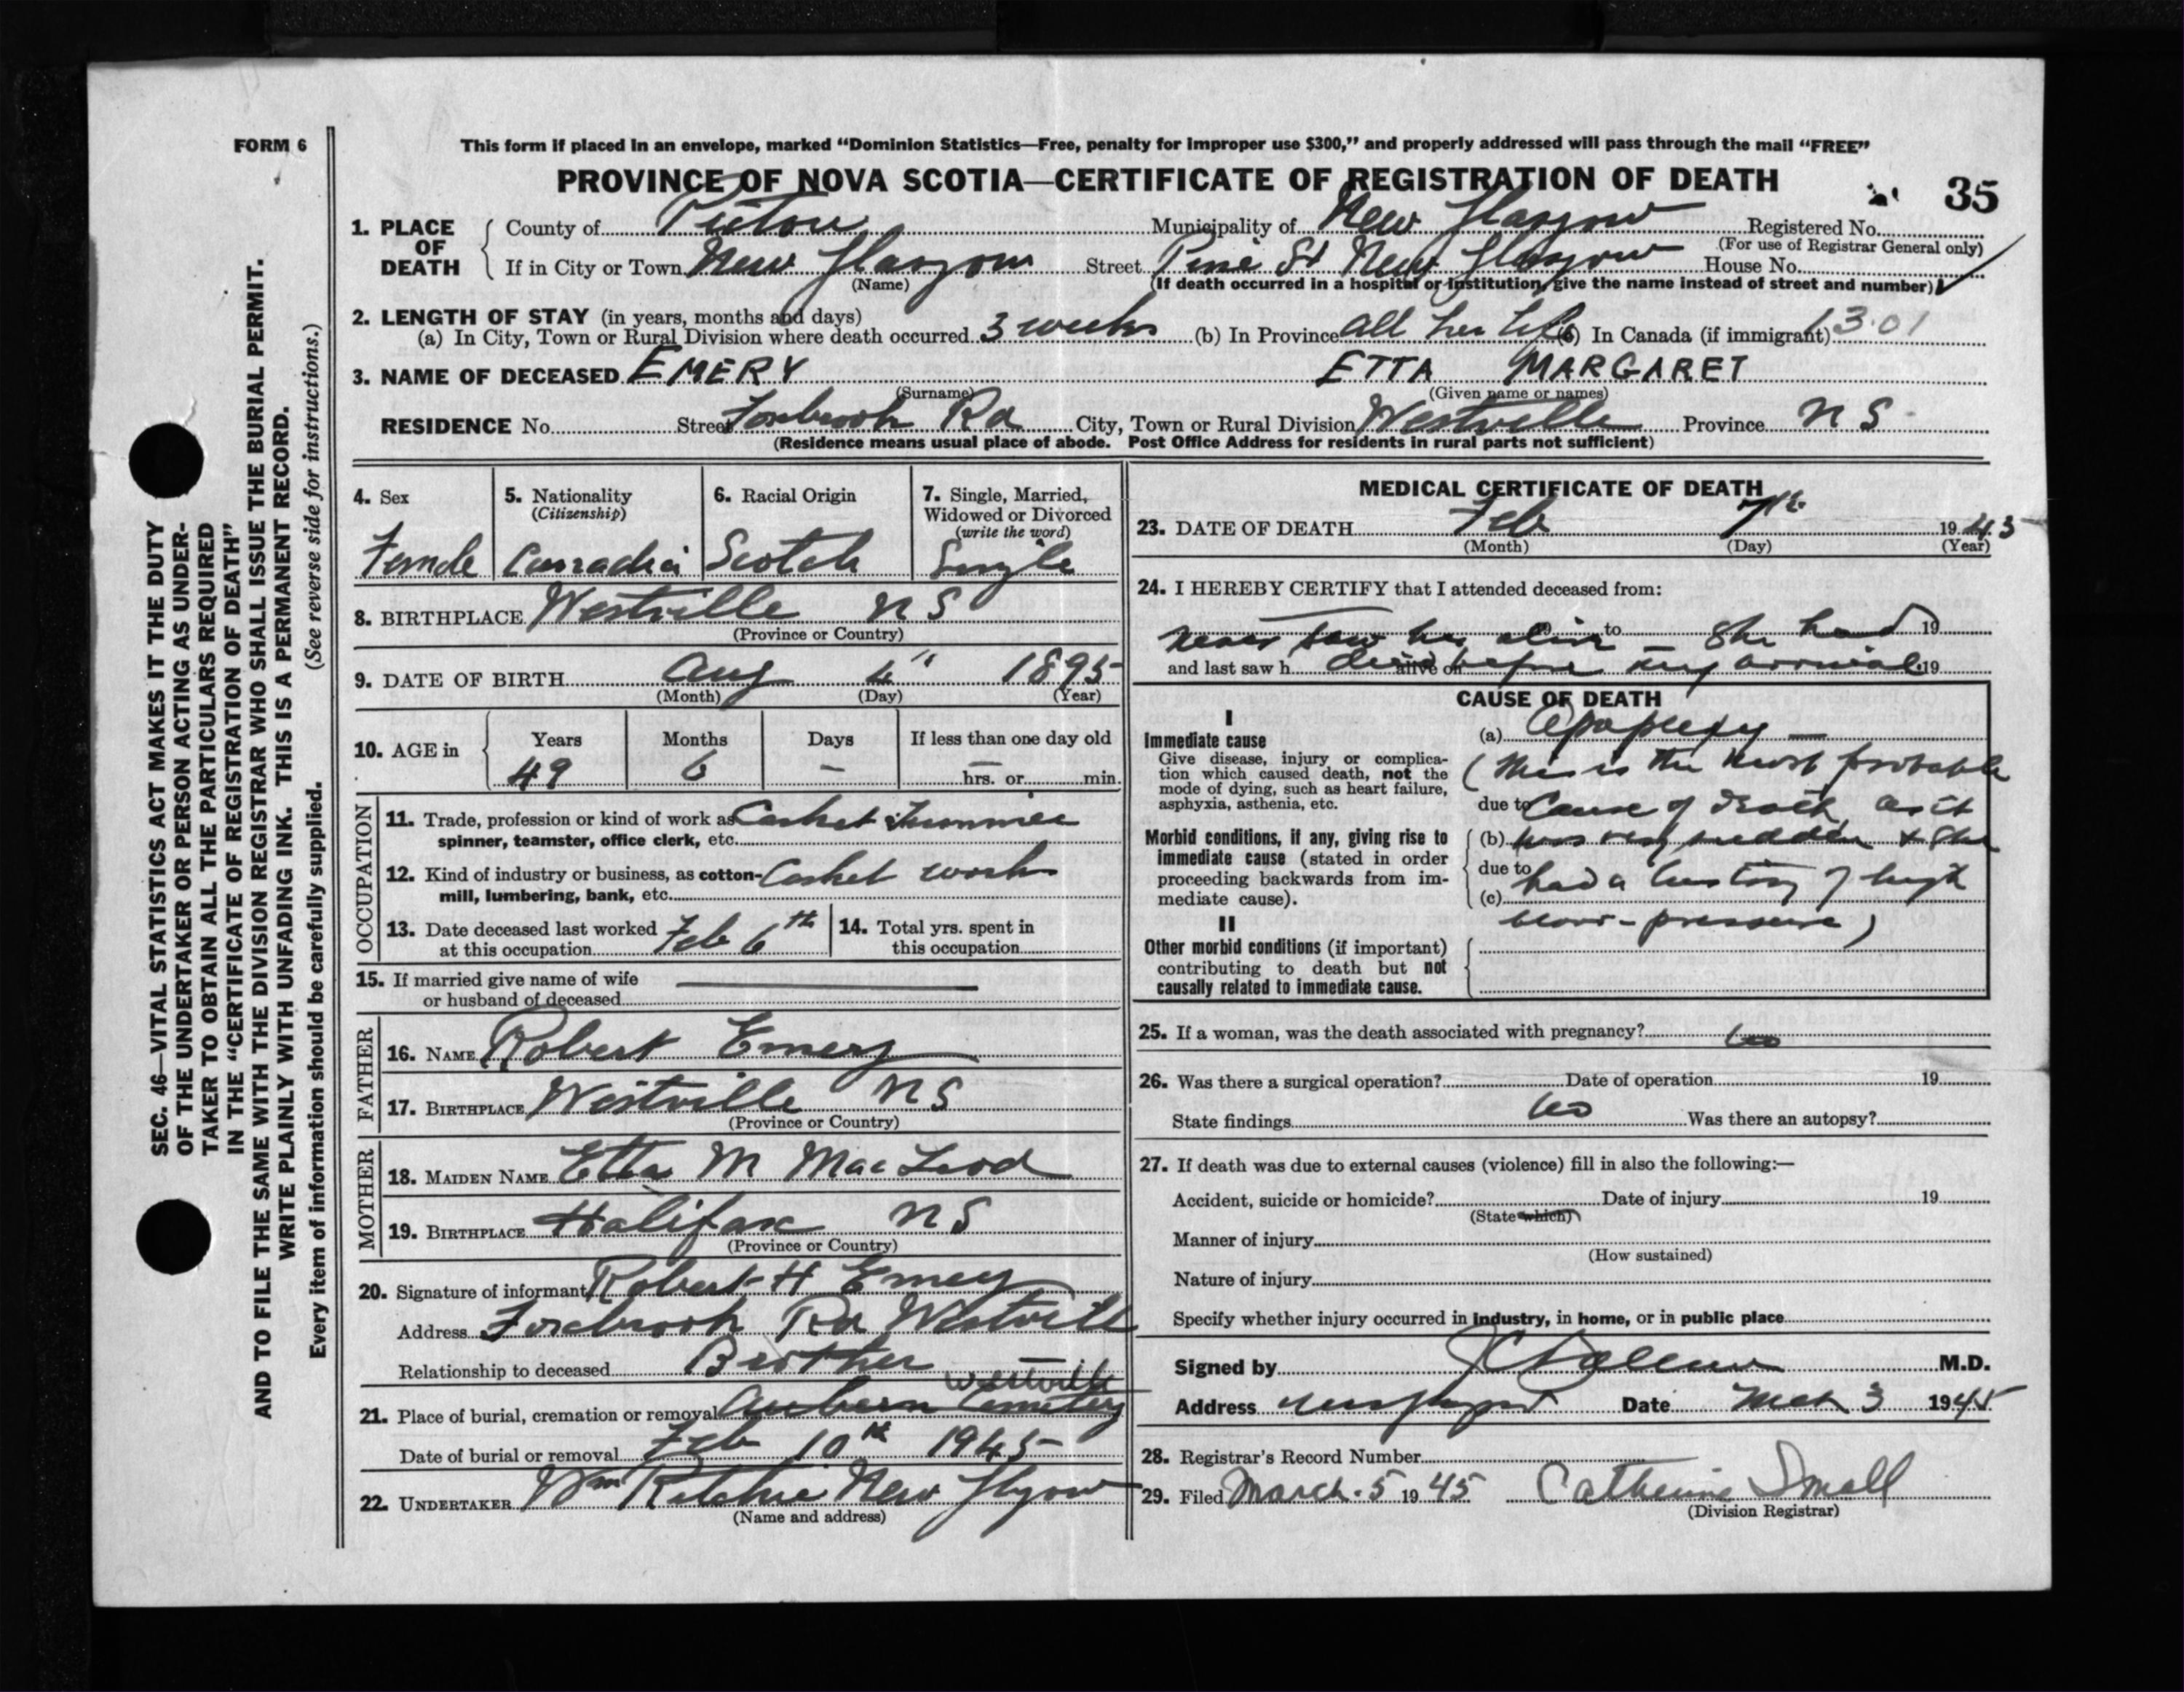 FORM 6
This form if placed in an envelope, marked "Dominion Statistics—Free, penalty for improper use $300," and properly addressed will pass through the mail "FREE"
PROVINCE OF NOVA SCOTIA—CERTIFICATE OF REGISTRATION OF DEATH
35
1. PLACE OF DEATH
County of Pictou Municipality of New Glasgow Registered No.
(For use of Registrar General only)
If in City or Town New Glasgow Street Pine St New Glasgow House No.
(Name) (If death occurred in a hospital or institution, give the name instead of street and number)
2. LENGTH OF STAY (in years, months and days)
(a) In City, Town or Rural Division where death occurred 3 weeks (b) In Province all her life (c) In Canada (if immigrant) 1301
3. NAME OF DECEASED EMERY ETTA MARGARET
(Surname) (Given name or names)
RESIDENCE No. Street Foxbrook Rd City, Town or Rural Division Westville Province N S
(Residence means usual place of abode. Post Office Address for residents in rural parts not sufficient)
4. Sex
Female
5. Nationality
(Citizenship)
Canadian
6. Racial Origin
Scotch
7. Single, Married,
Widowed or Divorced
(write the word)
Single
8. BIRTHPLACE Westville N S
(Province or Country)
9. DATE OF BIRTH Aug 4" 1895
(Month) (Day) (Year)
10. AGE in
Years Months Days If less than one day old
49 6 – – hrs. or min.
OCCUPATION
11. Trade, profession or kind of work as Casket Trimmer
spinner, teamster, office clerk, etc.
12. Kind of industry or business, as cotton- Casket works
mill, lumbering, bank, etc.
13. Date deceased last worked
at this occupation Feb 6th
14. Total yrs. spent in
this occupation
15. If married give name of wife
or husband of deceased
FATHER
16. NAME Robert Emery
17. BIRTHPLACE Westville N S
(Province or Country)
MOTHER
18. MAIDEN NAME Etta M MacLeod
19. BIRTHPLACE Halifax N S
(Province or Country)
20. Signature of informant Robert H Emery
Address Foxbrook Rd Westville
Relationship to deceased Brother
Westville
21. Place of burial, cremation or removal Auburn Cemetery
Date of burial or removal Feb 10th 1945
22. UNDERTAKER Wm Ritchie New Glasgow
(Name and address)
MEDICAL CERTIFICATE OF DEATH
23. DATE OF DEATH Feb 7th 1945
(Month) (Day) (Year)
24. I HEREBY CERTIFY that I attended deceased from:
never saw her alive to – She had 19
and last saw h died alive on before my arrival 19
CAUSE OF DEATH
I
Immediate cause
Give disease, injury or complica-
tion which caused death, not the
mode of dying, such as heart failure,
asphyxia, asthenia, etc.
(a) Apoplexy –
(This is the most probable
due to cause of death, as it
Morbid conditions, if any, giving rise to
immediate cause (stated in order
proceeding backwards from im-
mediate cause).
(b) was very sudden & she
due to had a history of high
(c)
blood-pressure)
II
Other morbid conditions (if important)
contributing to death but not
causally related to immediate cause.
25. If a woman, was the death associated with pregnancy? no
26. Was there a surgical operation? Date of operation 19
State findings no Was there an autopsy?
27. If death was due to external causes (violence) fill in also the following:—
Accident, suicide or homicide? Date of injury 19
(State which)
Manner of injury
(How sustained)
Nature of injury
Specify whether injury occurred in industry, in home, or in public place
Signed by M.D.
Address New Glasgow Date Mch 3 1945
28. Registrar's Record Number
29. Filed March 5 1945 Catherine Small
(Division Registrar)
SEC. 46—VITAL STATISTICS ACT MAKES IT THE DUTY
OF THE UNDERTAKER OR PERSON ACTING AS UNDER-
TAKER TO OBTAIN ALL THE PARTICULARS REQUIRED
IN THE "CERTIFICATE OF REGISTRATION OF DEATH"
AND TO FILE THE SAME WITH THE DIVISION REGISTRAR WHO SHALL ISSUE THE BURIAL PERMIT.
WRITE PLAINLY WITH UNFADING INK. THIS IS A PERMANENT RECORD.
Every item of information should be carefully supplied. (See reverse side for instructions.)